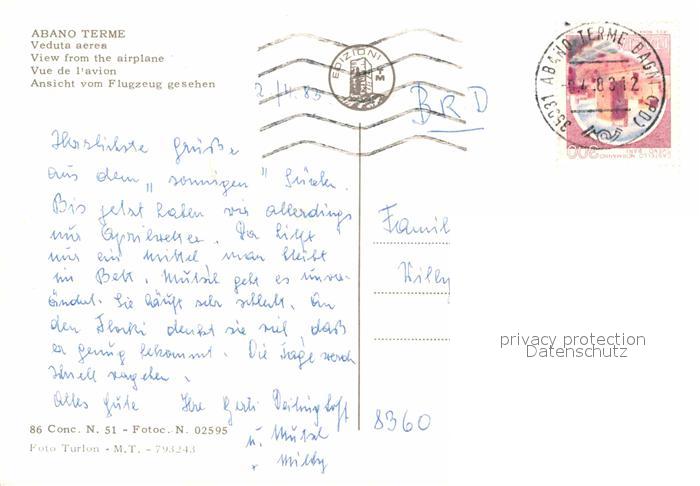 ABANO TERME
Veduta aerea
View from the airplane
Vue de l'avion
Ansicht vom Flugzeug gesehen
EDIZIONI
35031 ABANO TERME BAGNI (PD)
2/4.83
BRD
Herzlichste Grüße
aus dem „sonnigen" Süden.
Bis jetzt haben wir allerdings
nur Aprilwetter. Da hilft
nur ein Mittel man bleibt
im Bett. Mutsil geht es unver-
ändert. Sie läuft sehr schlecht. An
den Flocki denkt sie viel daß
er genug bekommt. Die Tage werden
schnell vergehen.
Alles Gute Ihre Gerti
u. Mutsl
+ Milly
Famil
Willy
8360
privacy protection
Datenschutz
86 Conc. N. 51 - Fotoc. N. 02595
Foto Turlon - M.T. - 793243